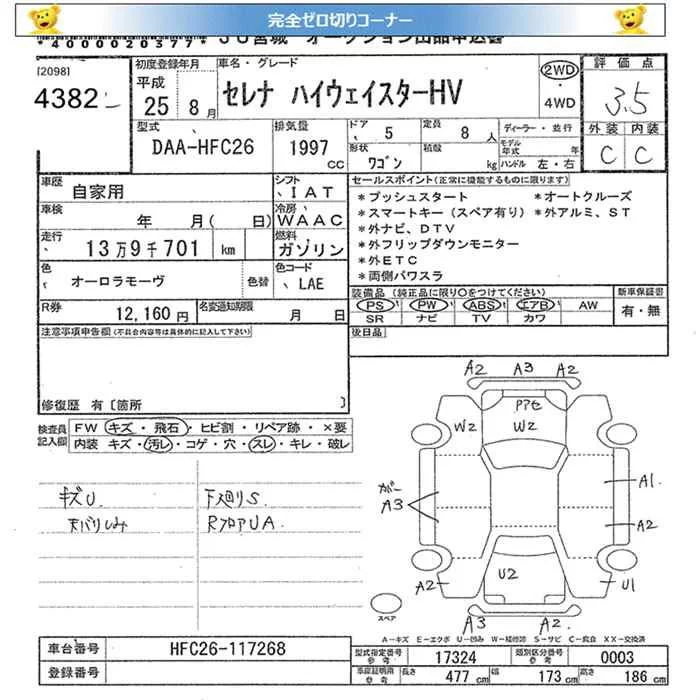 完全ゼロ切りコーナー
*4000020377* JU宮城 オークション出品申込書
[2098]
4382
初度登録年月
平成
25 8月
車名・グレード
セレナ ハイウェイスターHV
2WD
・
4WD
評価点
3.5
外装 内装
C C
型式
DAA-HFC26
排気量
1997
CC
ドア
5
定員
8人
形状
ワゴン
積載
kg
ディーラー・並行
モデル年式 年
ハンドル 左・右
車歴
自家用
シフト
IAT
車検
年 月( 日)
冷房
WAAC
走行
13万9千701 km
燃料
ガソリン
色
オーロラモーヴ
色替
色コード
LAE
R券
12,160円
名変通知期限
月 日
セールスポイント(正常に機能するものに限ります)
*プッシュスタート *オートクルーズ
*スマートキー(スペア有り) *外アルミ、ST
*外ナビ、DTV
*外フリップダウンモニター
*外ETC
*両側パワスラ
装備品(純正品に限り○をつけてください)
PS PW ABS エアB AW
SR ナビ TV カワ
新車保証書
有・無
注意事項申告欄(不具合内容等は具体的に記入して下さい)
後日品
修復歴 有〔箇所 〕
検査員記入欄
FW キズ・飛石・ヒビ割・リペア跡・×要
内装 キズ・汚レ・コゲ・穴・スレ・キレ・破レ
キズU
天バリしみ
下廻りS
RフロアUA
A2 A3 A2
アアセ
W2
W2
ガー
A3
A1
A2
U2
A2
U1
A3
A2
スペア
A-キズ E-エクボ U-凹み W-補修跡 S-サビ C-腐食 XX-交換済
車台番号
HFC26-117268
登録番号
型式指定番号
参考
17324
類別区分番号
参考
0003
車庫証明用
参考
長さ
477 cm
幅
173 cm
高さ
186 cm